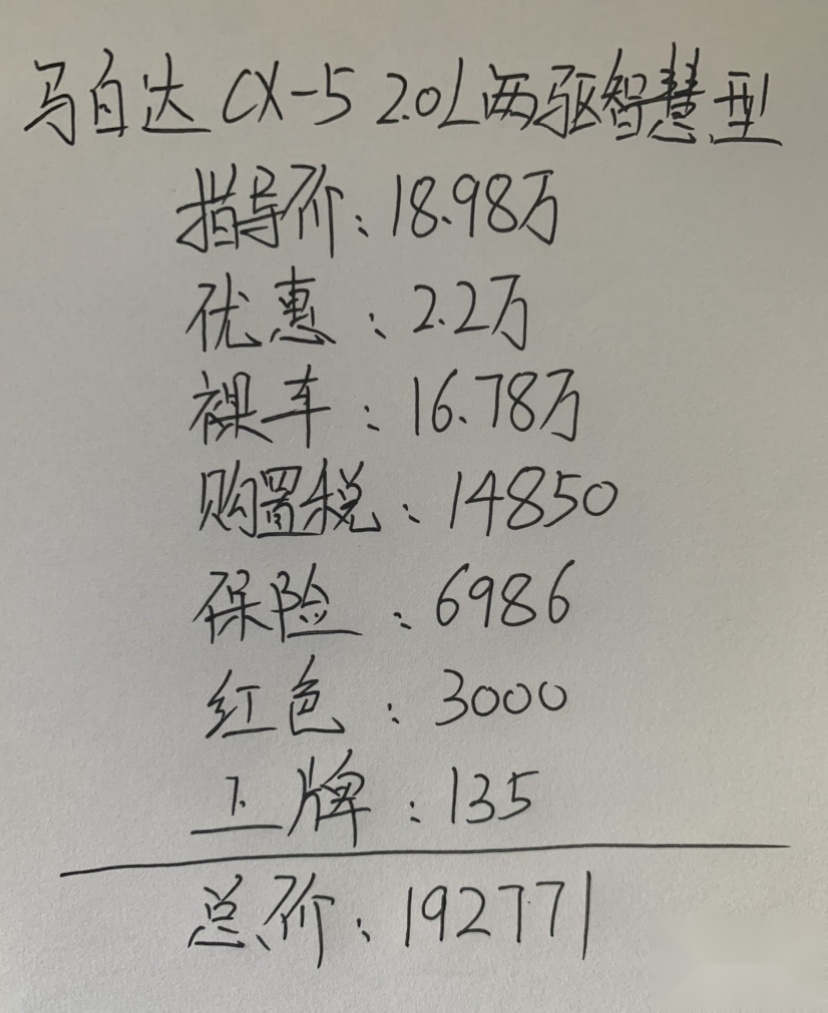 马自达 CX-5 2.0L两驱智慧型
指导价：18.98万
优惠：2.2万
裸车：16.78万
购置税：14850
保险：6986
红色：3000
上牌：135
总价：192771